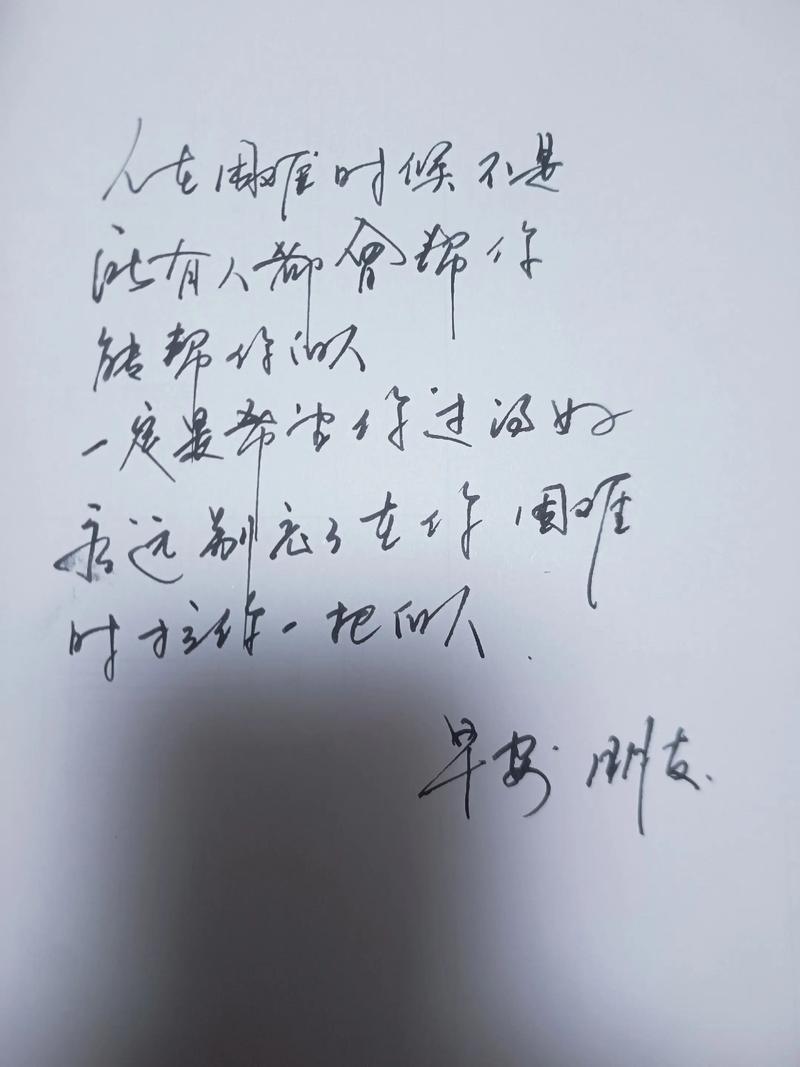 人在困难时候不是
所有人都会帮你
能帮你的人
一定是希望你过得好
永远别忘了在你困难
时拉你一把的人
早安 朋友.